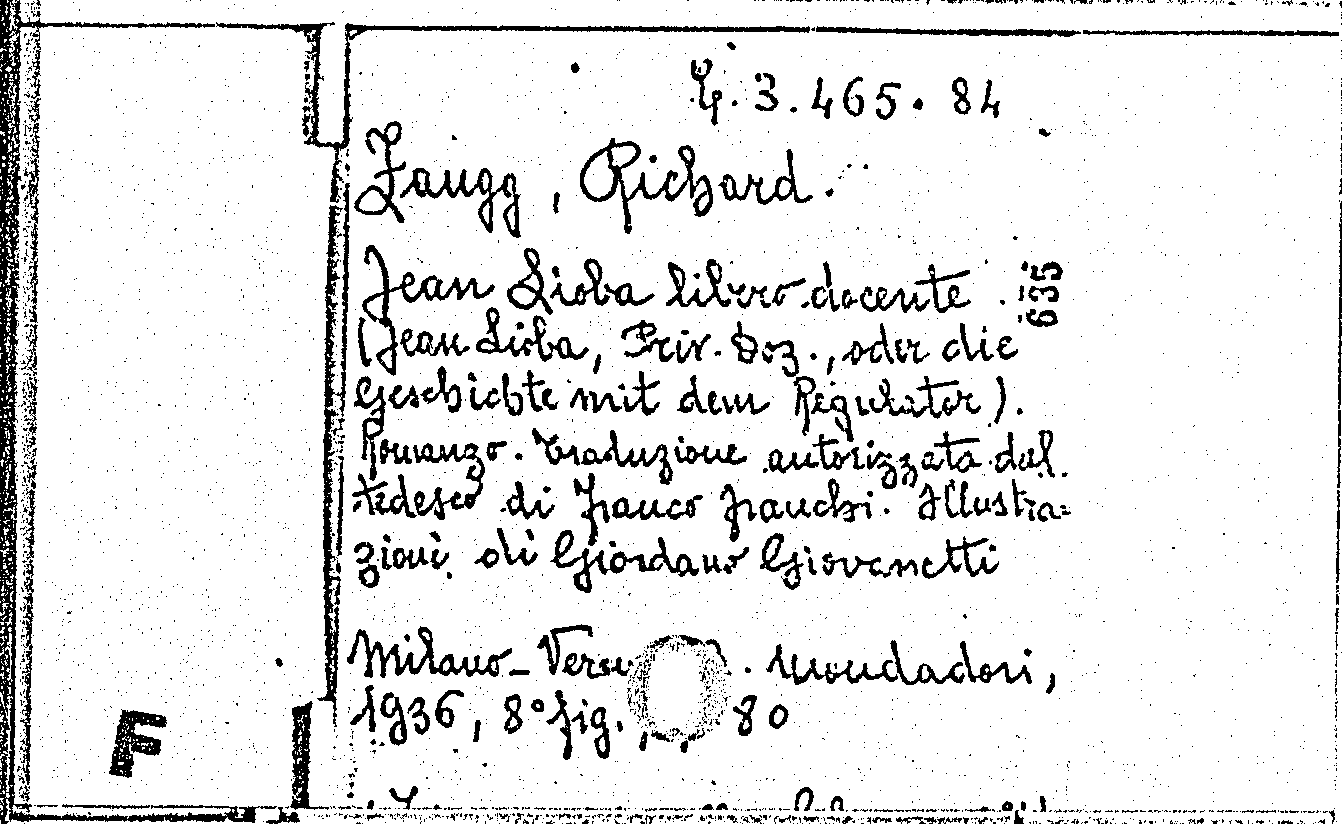 3.465.84
Zaugg, Richard.
Jean Lioba libero docente.
635
(Jean Lioba, Priv. Doz., oder die
Geschichte mit dem Regulator).
Romanzo. Traduzione autorizzata dal
tedesco di Franco Franchi. Illustra=
zioni di Giordano Giovanetti
Milano - Mondadori,
1936, 8° fig., 80
F